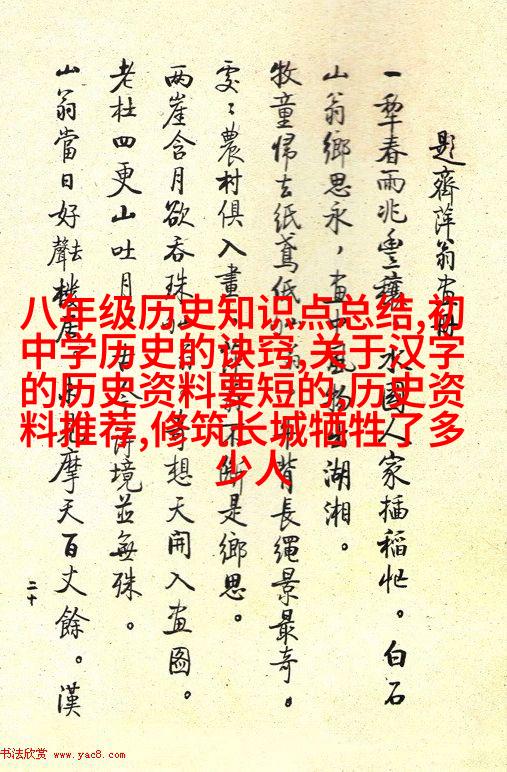 題齊萍翁畫冊
一犁春雨兆豐穰 水國人家插稻忙。白石
山翁鄉思永,畫中風物 湖湘。
牧童歸去紙鳶低 背長繩景最奇。
處〻農村俱入畫 不斷是鄉思。
兩崖含月欲吞珠 奇想天開入畫圖。
老杜四更山吐月 古今詩境並無殊。
山翁當日好去聲樓居 未見摩天百丈餘。漢
二十
八年级历史知识点总结,初
中学历史的诀窍,关于汉字
的历史资料要短的,历史资
料推荐,修筑长城牺牲了多
少人
书法欣赏 www.yac8.com